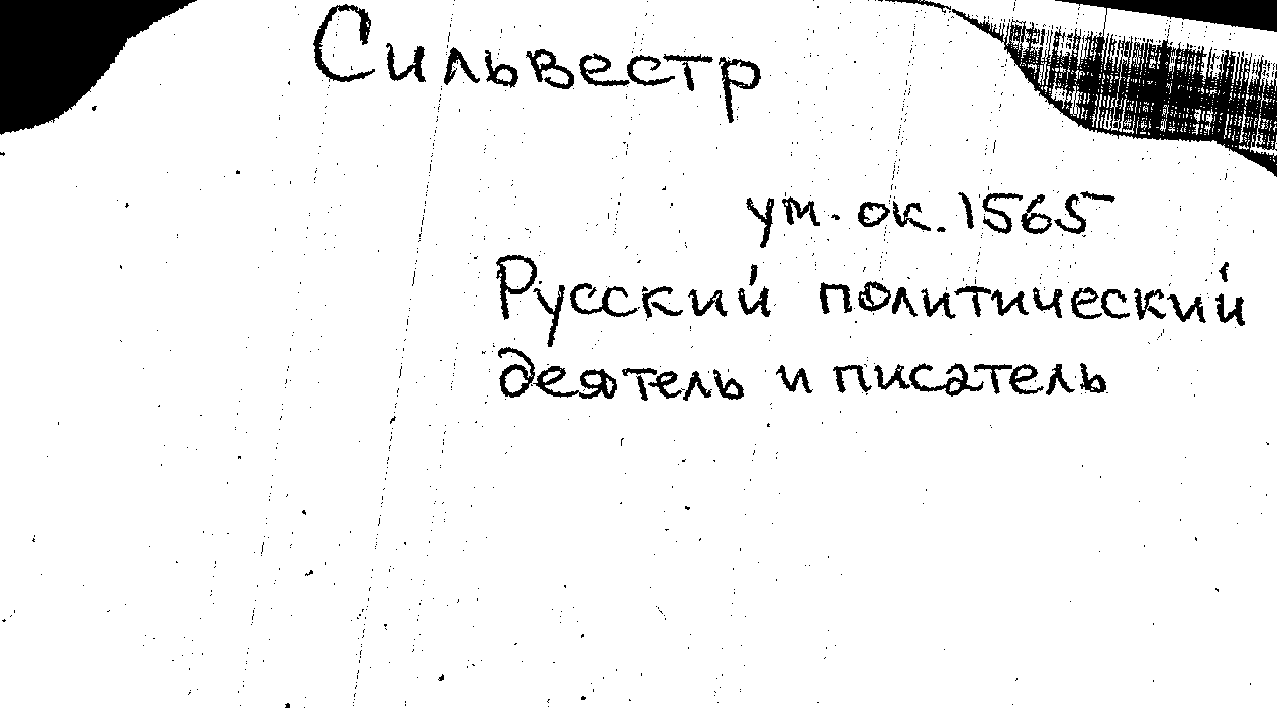 Сильвестр
ум. ок. 1565
Русский политический
деятель и писатель